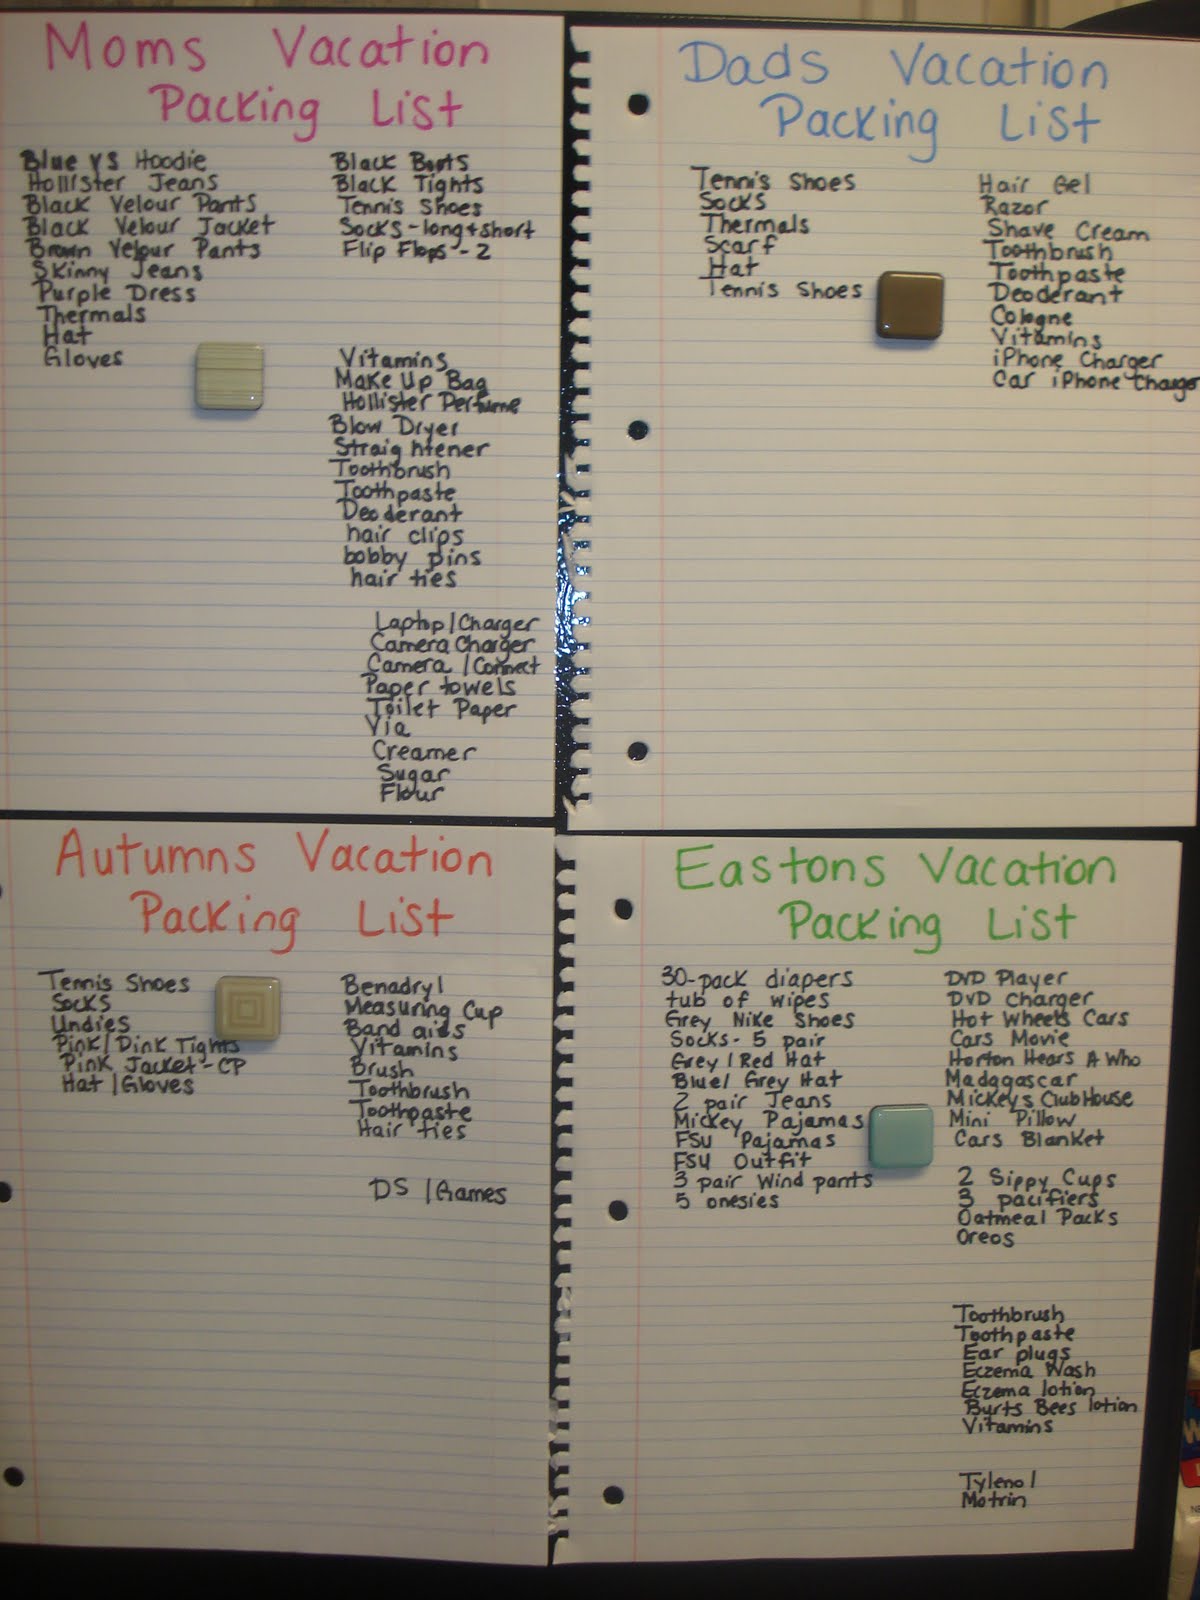 Moms Vacation
Packing List
Blue VS Hoodie
Hollister Jeans
Black Velour Pants
Black Velour Jacket
Brown Velour Pants
Skinny Jeans
Purple Dress
Thermals
Hat
Gloves
Black Boots
Black Tights
Tennis Shoes
Socks - long + short
Flip Flops - 2
Vitamins
Make Up Bag
Hollister Perfume
Blow Dryer
Straightener
Toothbrush
Toothpaste
Deoderant
hair clips
bobby pins
hair ties
Laptop / Charger
Camera Charger
Camera / Connect
Paper towels
Toilet Paper
Via
Creamer
Sugar
Flour
Dads Vacation
Packing List
Tennis Shoes
Socks
Thermals
Scarf
Hat
Tennis Shoes
Hair Gel
Razor
Shave Cream
Toothbrush
Toothpaste
Deoderant
Cologne
Vitamins
iPhone Charger
Car iPhone Charger
Autumns Vacation
Packing List
Tennis Shoes
Socks
Undies
Pink / Dink Tights
Pink Jacket - CP
Hat / Gloves
Benadryl
Measuring Cup
Band aids
Vitamins
Brush
Toothbrush
Toothpaste
Hair ties
DS / Games
Eastons Vacation
Packing List
30-pack diapers
tub of wipes
Grey Nike Shoes
Socks - 5 pair
Grey / Red Hat
Blue / Grey Hat
2 pair Jeans
Mickey Pajamas
FSU Pajamas
FSU Outfit
3 pair Wind pants
5 onesies
DVD Player
DVD Charger
Hot Wheels Cars
Cars Movie
Horton Hears A Who
Madagascar
Mickeys ClubHouse
Mini Pillow
Cars Blanket
2 Sippy Cups
3 pacifiers
Oatmeal Packs
Oreos
Toothbrush
Toothpaste
Ear plugs
Eczema Wash
Eczema lotion
Burts Bees lotion
Vitamins
Tylenol
Motrin